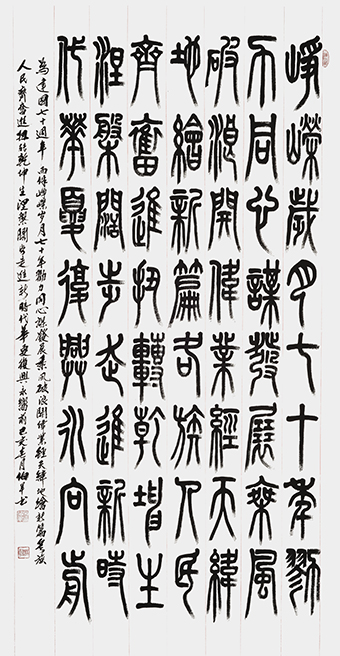 崢嶸歲月七十年勠
力同心謀發展乘風
破浪開偉業經天緯
地繪新篇各族人民
齊奮進扭轉乾坤生
涅槃闊步走進新時
代華夏復興永向前
為建國七十週年而作崢嶸歲月七十年勠力同心謀發展乘風破浪開偉業經天緯地繪新篇各族
人民齊奮進扭轉乾坤生涅槃闊步走進新時代華夏復興永向前己亥月書